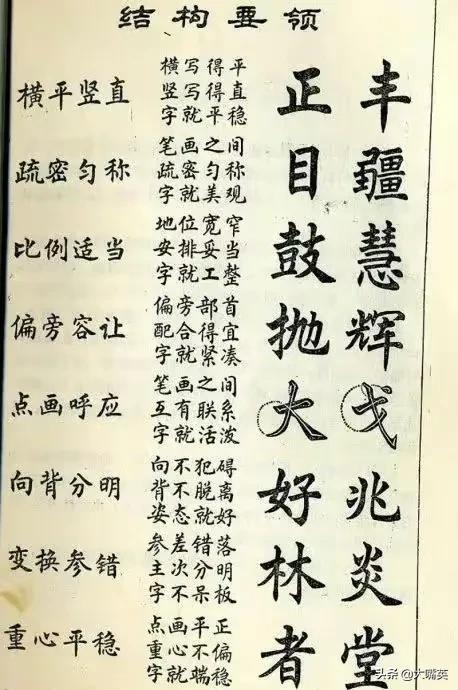 结构要领
横平竖直
横写得平
竖写得直
字就平稳
正 丰
疏密匀称
笔画之间
疏密匀称
字就美观
目 疆
比例适当
地位宽窄
安排妥当
字就工整
鼓 慧
偏旁容让
偏旁部首
配合得宜
字就紧凑
抛 辉
点画呼应
笔画之间
互有联系
字就活泼
火 戈
向背分明
向不犯碍
背不脱离
姿态就好
好 兆
变换参错
参差错落
主次分明
字不呆板
林 炎
重心平稳
点画平正
重心不偏
字就端稳
者 堂
头条 @大嘴英